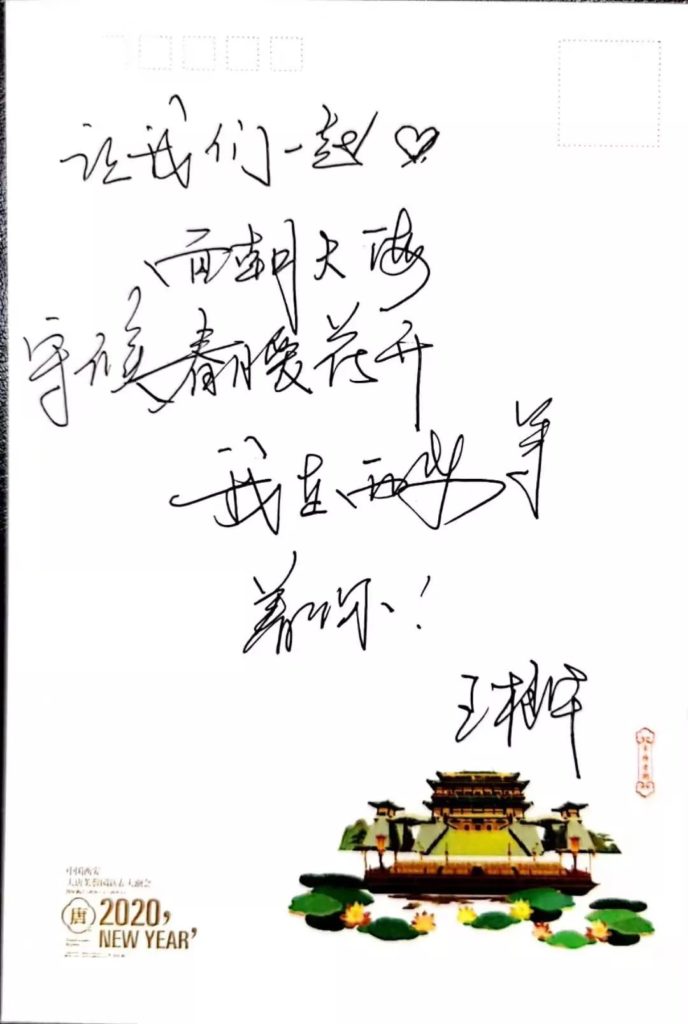 让我们一起♡
面朝大海
守候春暖花开
我在西安等
着你!
中国西安
唐
2020,
NEW YEAR'